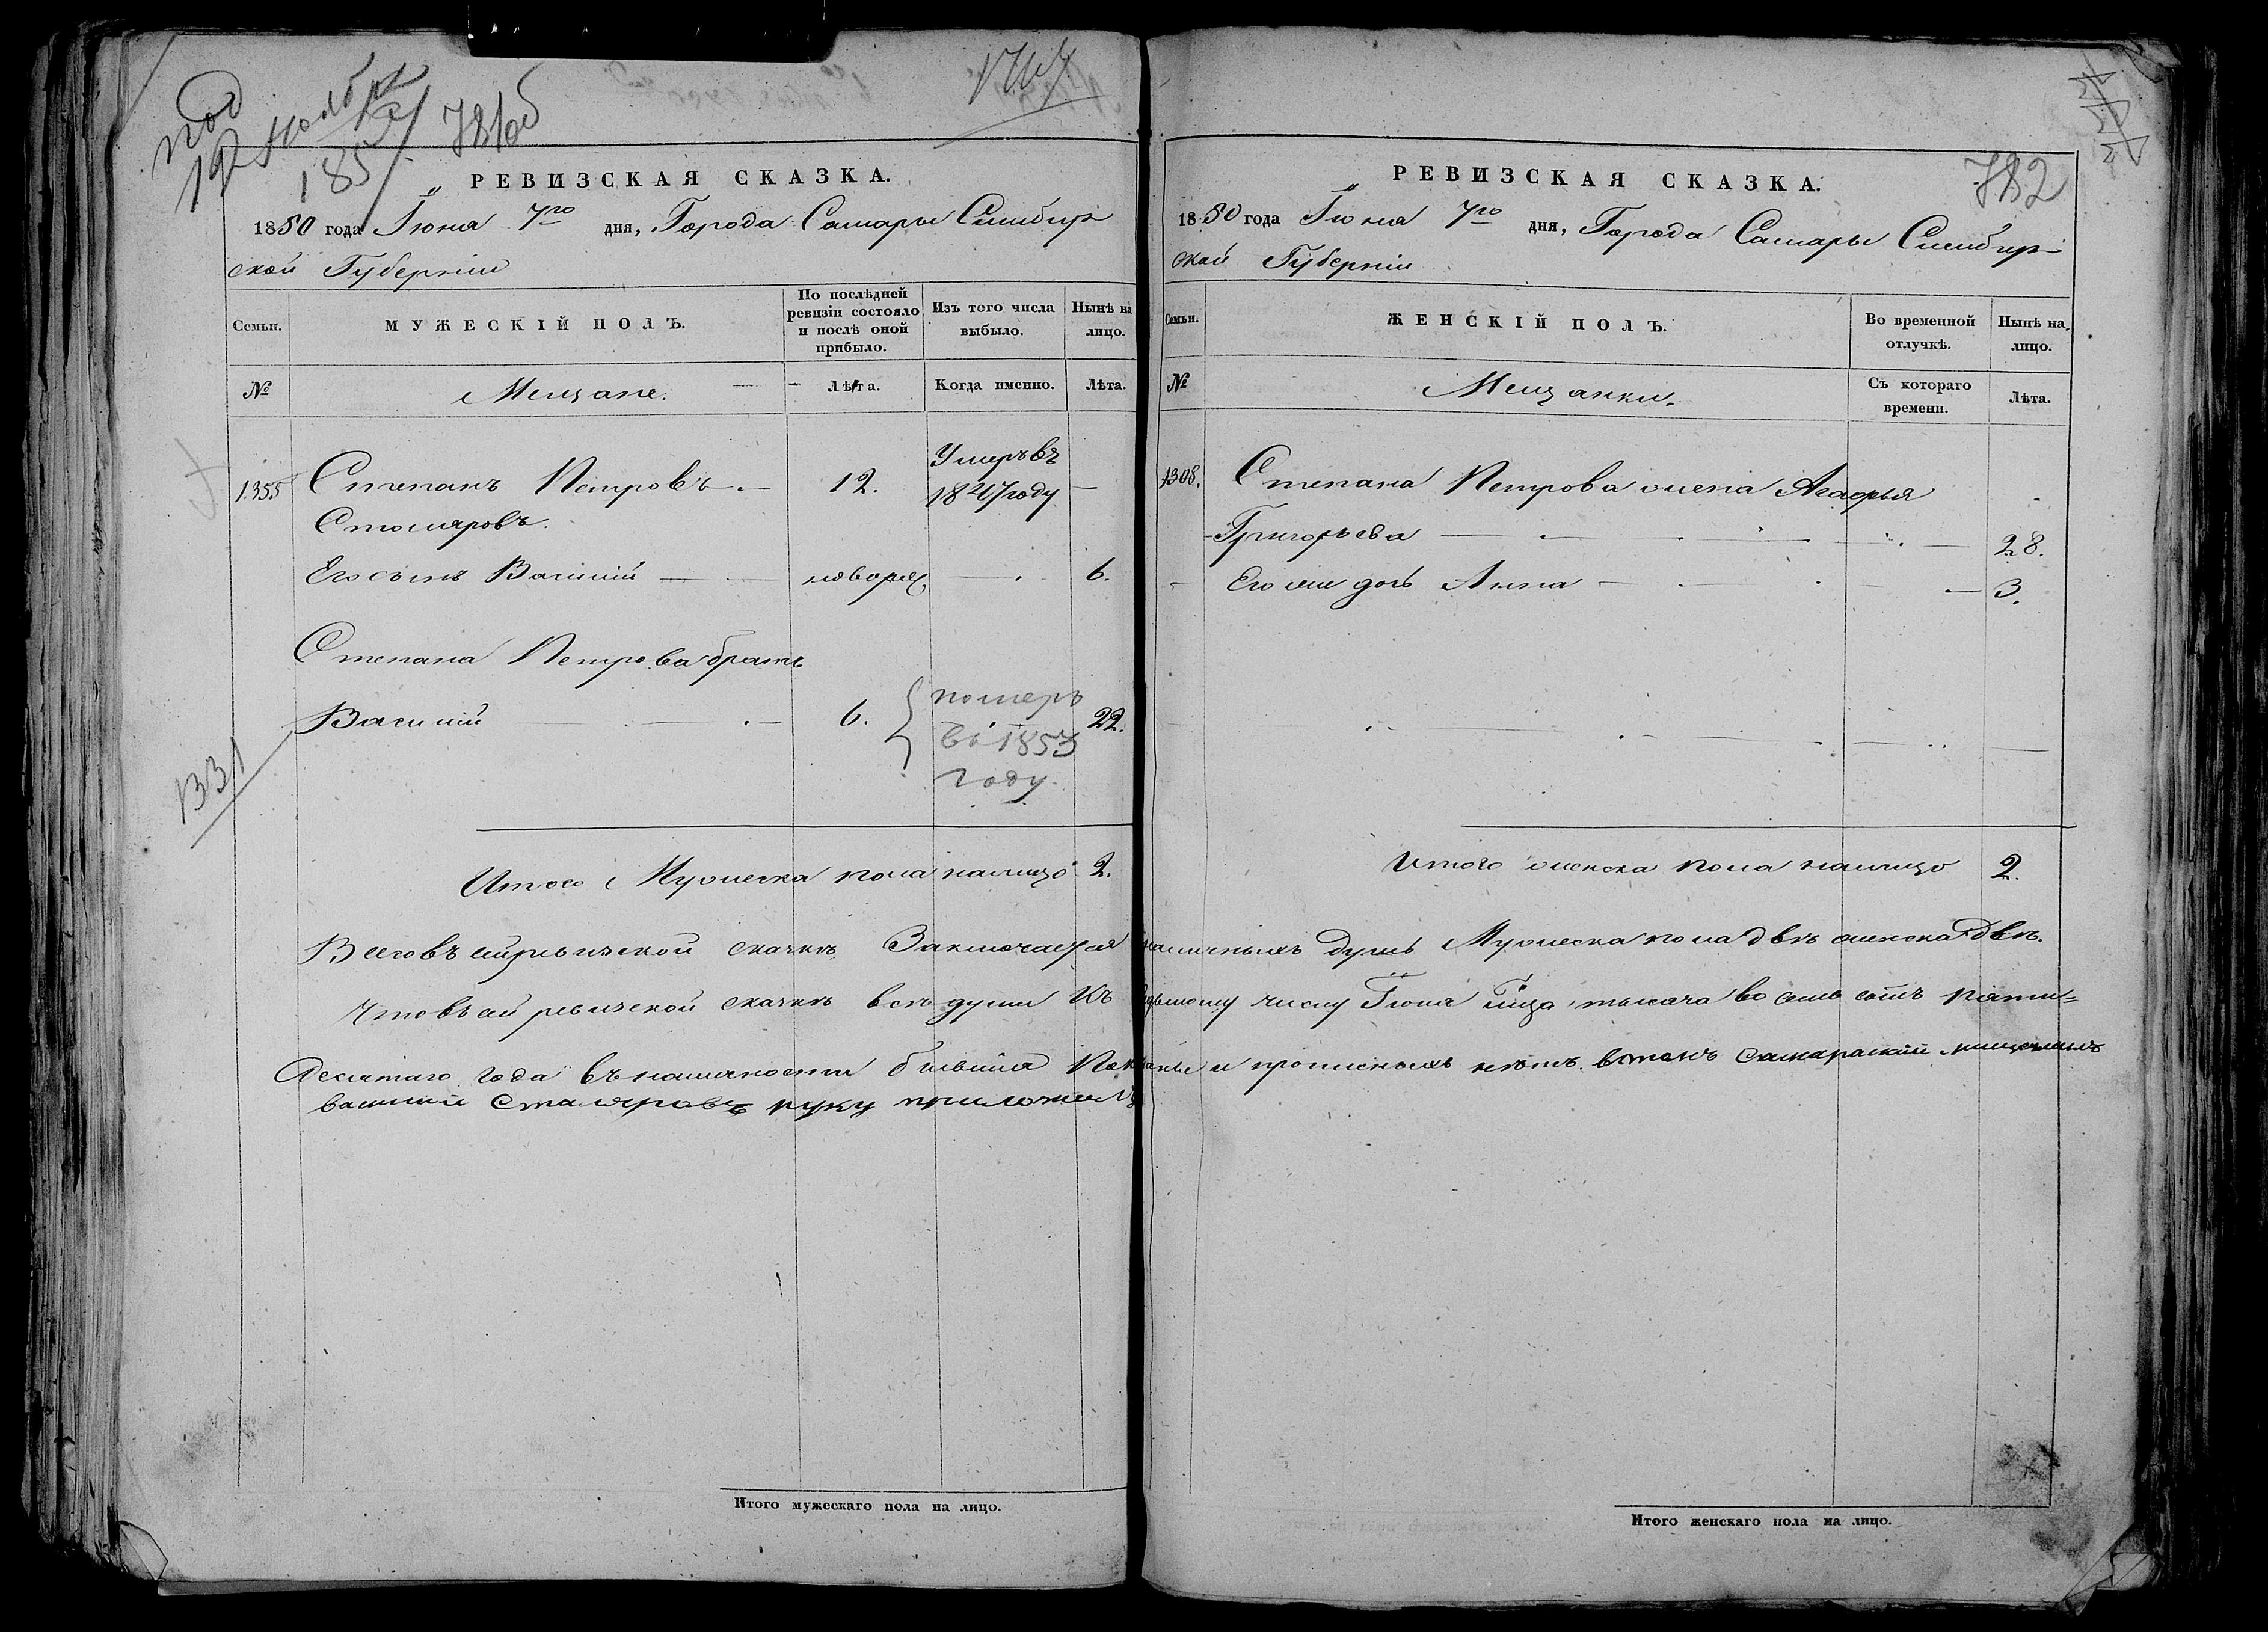 под
19 ноября
185
781об
РЕВИЗСКАЯ СКАЗКА.
1850 года Іюня 7го дня, Города Самары Симбир
ской Губерніи
Семьи.
МУЖЕСКІЙ ПОЛЪ.
По послѣдней ревизіи состояло и послѣ оной прибыло.
Изъ того числа выбыло.
Нынѣ на лицо.
№
Мещане.
Лѣта.
Когда именно.
Лѣта.
1355
Степанъ Петровъ 12. Умеръ въ
1847 году
Столяровъ.
Его сынъ Василий новорож 6.
Степана Петрова братъ
Василий 6. 22.
померъ
въ 1853
году
1331
Итого Мужеска пола налицо 2.
РЕВИЗСКАЯ СКАЗКА.
782
1850 года Іюня 7го дня, Города Самары Симбир
ской Губерніи
Семьи.
ЖЕНСКІЙ ПОЛЪ.
Во временной отлучкѣ.
Нынѣ на лицо.
№
Мещанки.
Съ котораго времени.
Лѣта.
1308. Степана Петрова жена Агафья
Григорьева 28.
Его же дочь Анна 3.
Итого женска пола налицо 2.
Всего въ сей ревизской скаскѣ Заключается наличныхъ душъ Мужеска пола двѣ женска двѣ.
Что въ сей ревизской скаскѣ всѣ души къ седьмому числу Іюня тысяча восемь сотъ пяти=
десятаго года въ наличности бывшия и прописныхъ нѣтъ. в томъ самарский мещенинъ
василий Сталяровъ руку приложилъ
Итого мужескаго пола на лицо.
Итого женскаго пола на лицо.